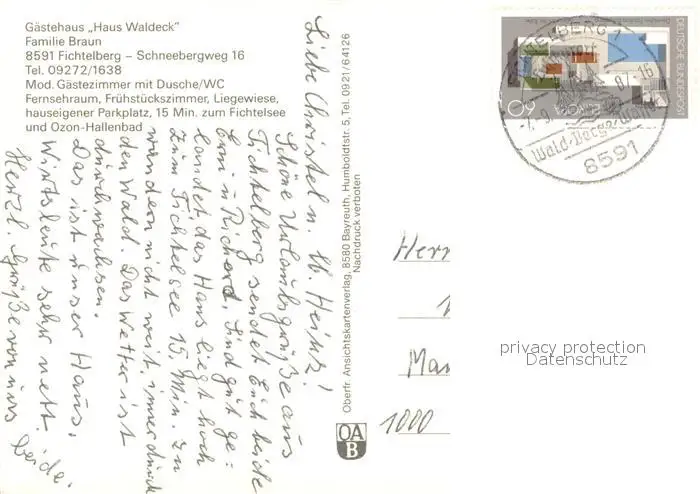 Gästehaus „Haus Waldeck"
Familie Braun
8591 Fichtelberg – Schneebergweg 16
Tel. 09272/1638
Mod. Gästezimmer mit Dusche/WC
Fernsehraum, Frühstückszimmer, Liegewiese,
hauseigener Parkplatz, 15 Min. zum Fichtelsee
und Ozon-Hallenbad
Liebe Christel u. lb. Heinz!
Schöne Urlaubsgrüße aus
Fichtelberg sendet Euch beide
u Richard. Sind gut ge=
landet das Haus liegt hoch
zum Fichtelsee 15 Min. zu
wandern nicht weit, immer durch
den Wald. Das Wetter ist
durchwachsen.
Das ist unser Haus.
Wirtsleute sehr nett.
Herzl. Grüße von uns beide.
Oberfr. Ansichtskartenverlag, 8580 Bayreuth, Humboldtstr. 5, Tel. 0921/64126
Nachdruck verboten
OA
B
DEUTSCHE BUNDESPOST
60
EUROPA
8591
Herr
Ma
1000
privacy protection
Datenschutz